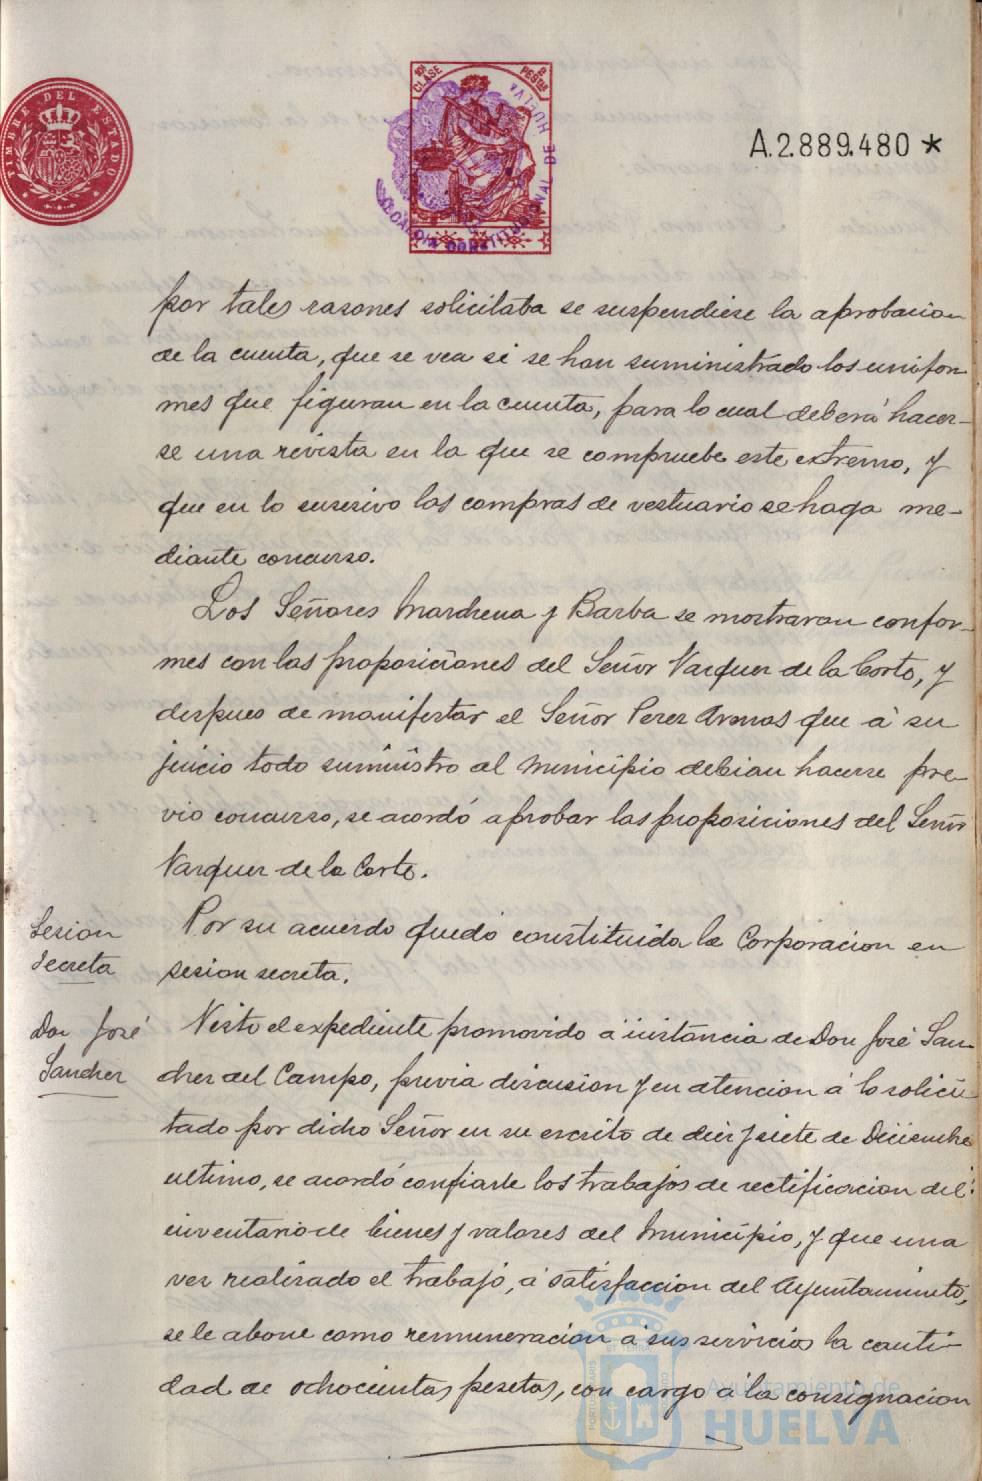 TIMBRE DEL ESTADO
10ª CLASE
8 PESETAS
ALCALDIA CONSTITUCIONAL DE HUELVA
A.2.889.480 *
por tales razones solicitaba se suspendiese la aprobacion
de la cuenta, que se vea si se han suministrado los unifor
mes que figuran en la cuenta, para lo cual deberá hacer-
se una revista en la que se compruebe este extremo, y
que en lo sucesivo las compras de vestuario se haga me-
diante concurso.
Los Señores Marchena y Barba se mostraron confor-
mes con las proposiciones del Señor Vazquez de la Corte, y
despues de manifestar el Señor Perez Arenas que á su
juicio todo suministro al Municipio debian hacerse pre-
vio concurso, se acordó aprobar las proposiciones del Señor
Vazquez de la Corte.
Sesion
secreta
Por su acuerdo quedó constituida la Corporacion en
sesion secreta.
Don José
Sanchez
Visto el expediente promovido á instancia de Don José San-
chez del Campo, previa discusion y en atencion á lo solici-
tado por dicho Señor en su escrito de diez y siete de Diciembre
ultimo, se acordó confiarle los trabajos de rectificacion del
inventario de bienes y valores del Municipio, y que una
vez realizado el trabajo, á satisfaccion del Ayuntamiento,
se le abone como remuneracion á sus servicios la canti-
dad de ochocientas pesetas, con cargo á la consignacion
Ayuntamiento de
HUELVA